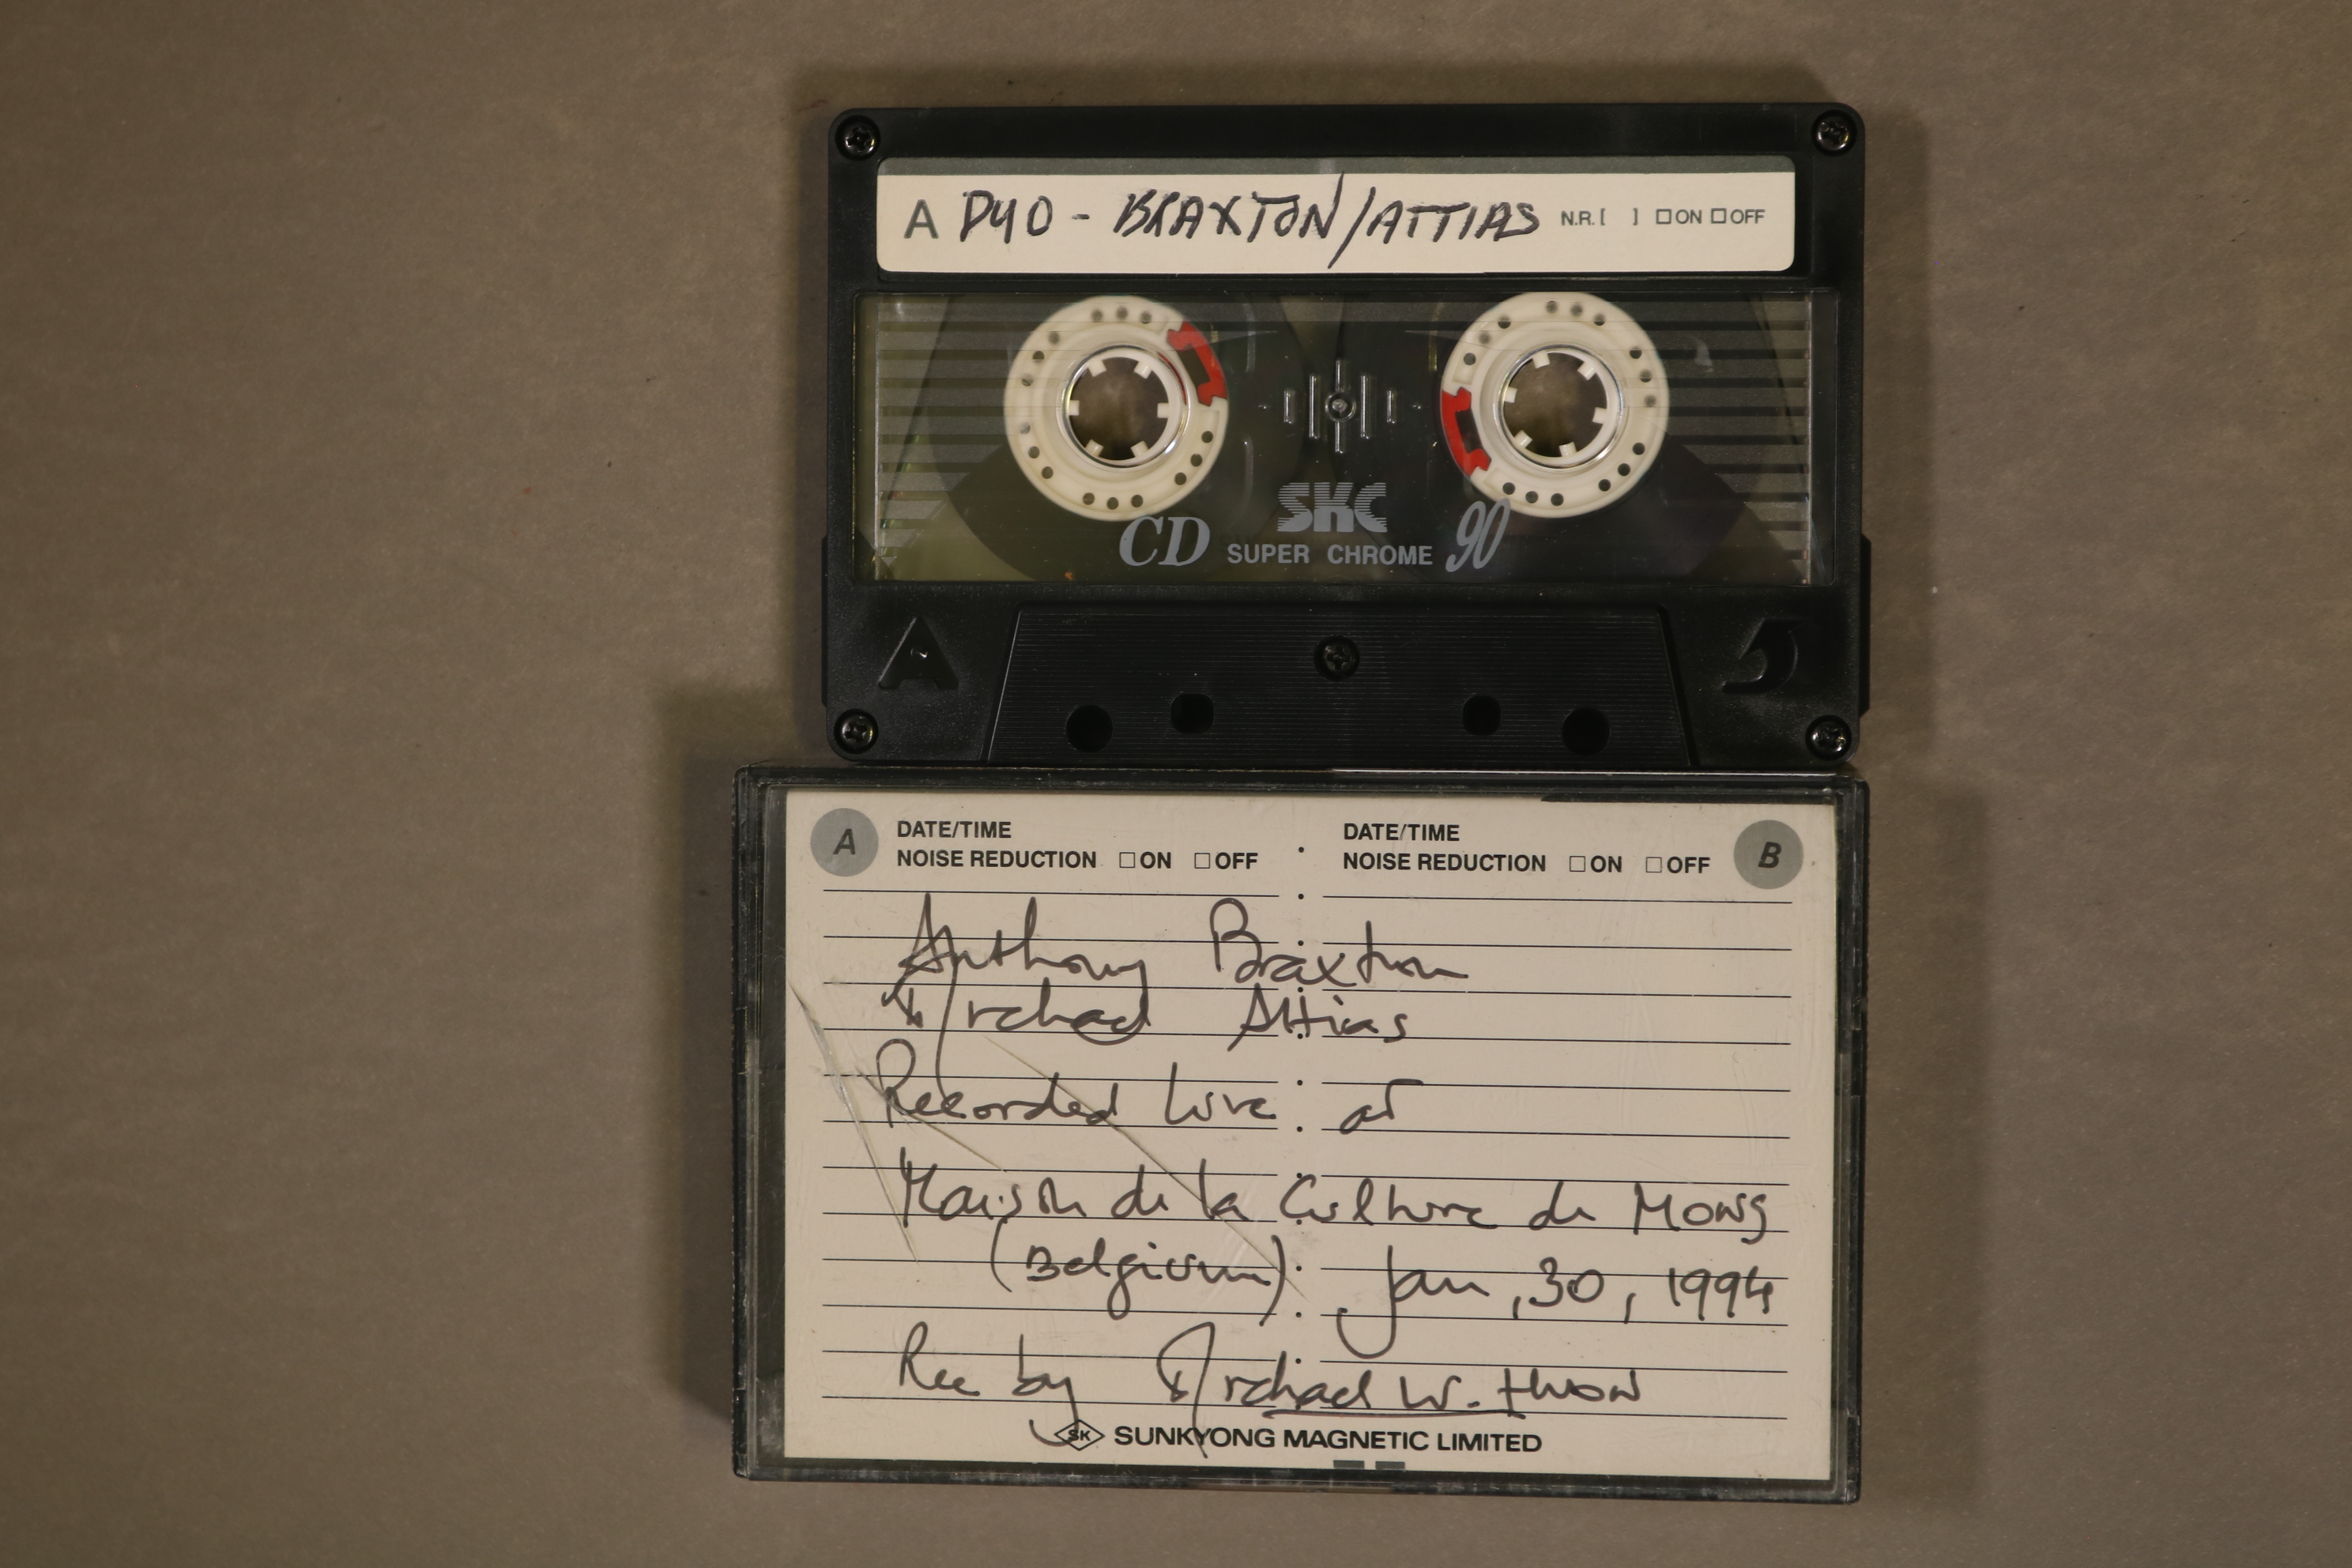 A DUO - BRAXTON/ATTIAS N.R. [ ] □ON □OFF
SKC
CD SUPER CHROME 90
A
A DATE/TIME DATE/TIME B
NOISE REDUCTION □ON □OFF NOISE REDUCTION □ON □OFF
Anthony Braxton
Michael Attias
Recorded live at
Maison de la Culture de Mons
(Belgium) Jan, 30, 1994
Rec by Michael W.
SK SUNKYONG MAGNETIC LIMITED